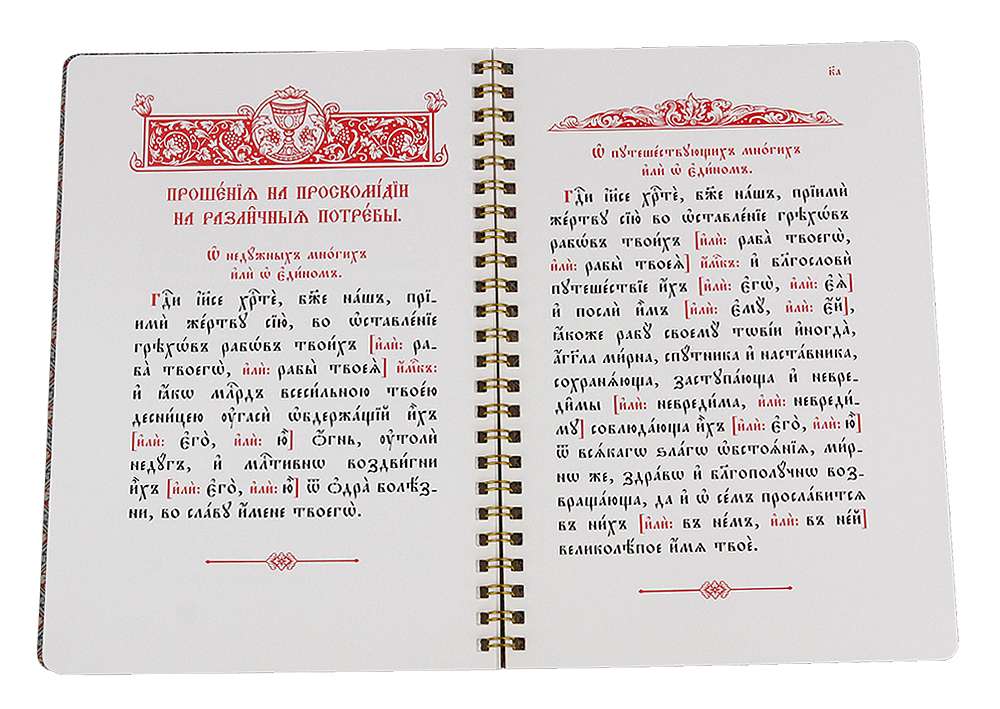 ПРОШЕ́НїѦ НА ПРОСКОМі́ДїИ
НА РАЗЛИ̑ЧНЫѦ ПОТРЕ́БЫ.
Ѽ недꙋ́жныхъ мно́гихъ
и҆лѝ ѡ҆ є҆ди́номъ.
Гд҇и і҆и҃се хрⷭ҇тѐ, бж҃е на́шъ, прї-
имѝ же́ртвꙋ сїю̀, во ѡ҆ставле́нїе
грѣхѡ́въ рабѡ́въ твои́хъ [и҆лѝ: ра-
ба̀ твоегѡ̀, и҆лѝ: рабы̀ твоеѧ̀] и҆́м⃰къ:
и҆ ꙗ҆́кѡ млⷭ҇рдъ всеси́льною твое́ю
десни́цею ᲂу҆гасѝ ѡ҆бдержа́щїй и҆̀хъ
[и҆лѝ: є҆го̀, и҆лѝ: ю҆̀] ѻ҆́гнь, ᲂу҆толѝ
недꙋ́гъ, и҆ млⷭ҇тивнѡ воздви́гни
и҆̀хъ [и҆лѝ: є҆го̀, и҆лѝ: ю҆̀] ѿ ѻ҆дра̀ болѣ́з-
ни, во сла́вꙋ и҆́мене твоегѡ̀.
к҃а
Ѽ пꙋтеше́ствꙋющихъ мно́гихъ
и҆лѝ ѡ҆ є҆ди́номъ.
Гд҇и і҆и҃се хрⷭ҇тѐ, бж҃е на́шъ, прїимѝ
же́ртвꙋ сїю̀ во ѡ҆ставле́нїе грѣхѡ́въ
рабѡ́въ твои́хъ [и҆лѝ: раба̀ твоегѡ̀,
и҆лѝ: рабы̀ твоеѧ̀] и҆́м⃰къ: и҆ бл҃гословѝ
пꙋтеше́ствїе и҆́хъ [и҆лѝ: є҆гѡ̀, и҆лѝ: є҆ѧ̀]
и҆ послѝ и҆̀мъ [и҆лѝ: є҆мꙋ̀, и҆лѝ: є҆́й],
ꙗ҆́коже рабꙋ̀ своемꙋ̀ тѡві́и и҆ногда̀,
а҆́гг҃ла ми́рна, спꙋ́тника и҆ наста́вника,
сохранѧ́юща, застꙋпа́юща и҆ невре-
ди̑мы [и҆лѝ: невреди́ма, и҆лѝ: невреди́-
мꙋ] соблюда́юща и҆̀хъ [и҆лѝ: є҆го̀, и҆лѝ: ю҆̀]
ѿ всѧ́кагѡ ѕла́гѡ ѡ҆бстоѧ́нїѧ, ми́р-
нѡ же, здра́вѡ и҆ бл҃гополꙋ́чнѡ воз-
враща́юща, да и҆ ѡ҆ се́мъ просла́витсѧ
въ ни́хъ [и҆лѝ: въ не́мъ, и҆лѝ: въ не́й]
великолѣ́пое и҆́мѧ твоѐ.